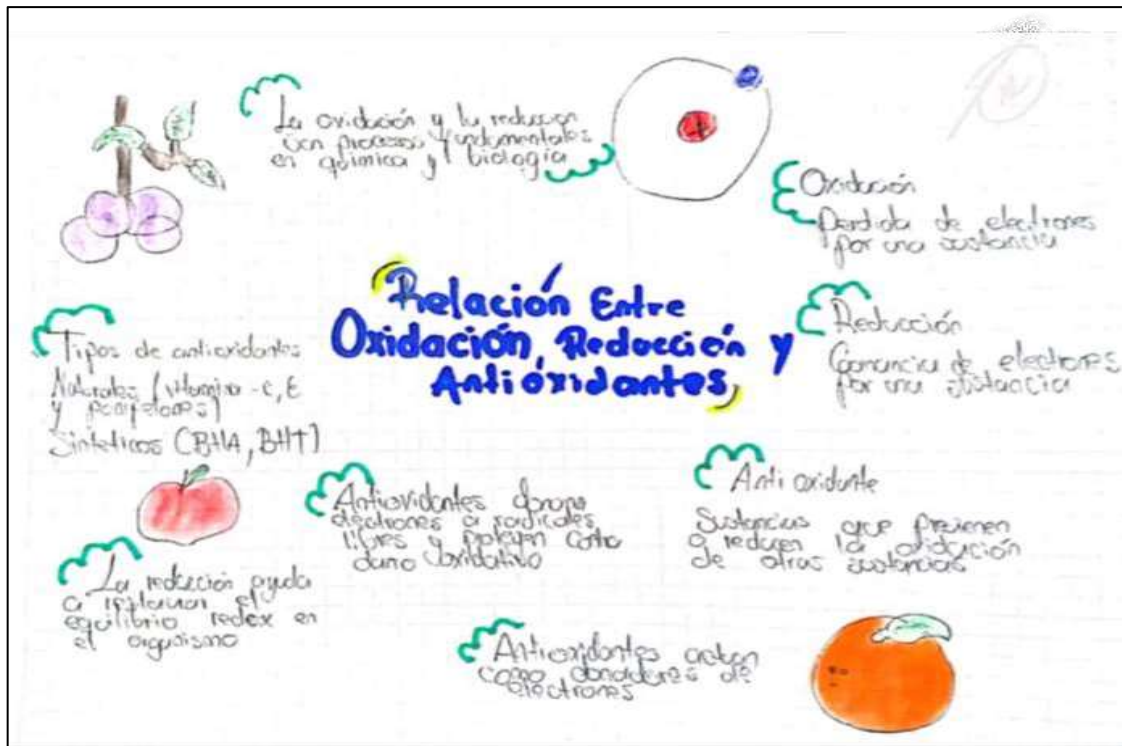 La oxidación y la reduccion
son procesos fundamentales
en química y biología
Oxidación
Perdida de electrones
por una sustancia
Relación Entre
Oxidación, Reducción y
Antióxidantes
Reducción
Ganancia de electrones
por una sustancia
Tipos de antioxidantes
Naturales (vitamina -C, E
y
Sinteticos (BHA, BHT)
Antioxidantes donan
electrones a radicales
libres y protegen contra
daño oxidativo
Anti oxidante
Sustancias que previenen
o reducen la oxidación
de otras sustancias
La reducción ayuda
a el
equilibrio redox en
el organismo
Antioxidantes actuan
como donadores de
electrones